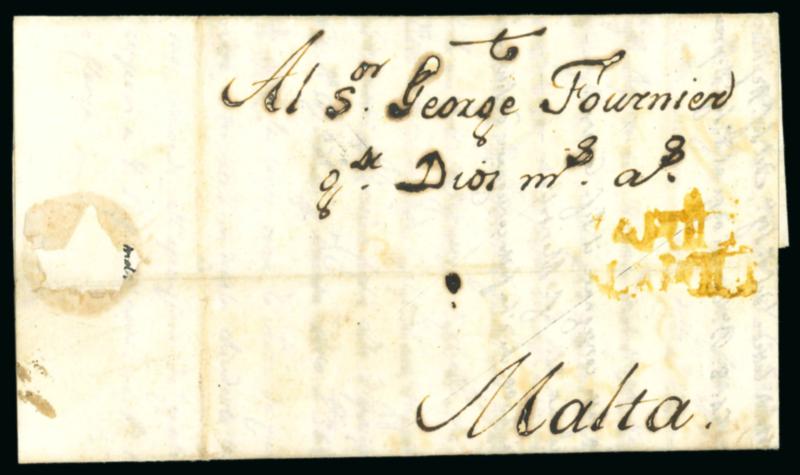 Al S.or George Fournier
q.n Dios m.s a.s
Malta.